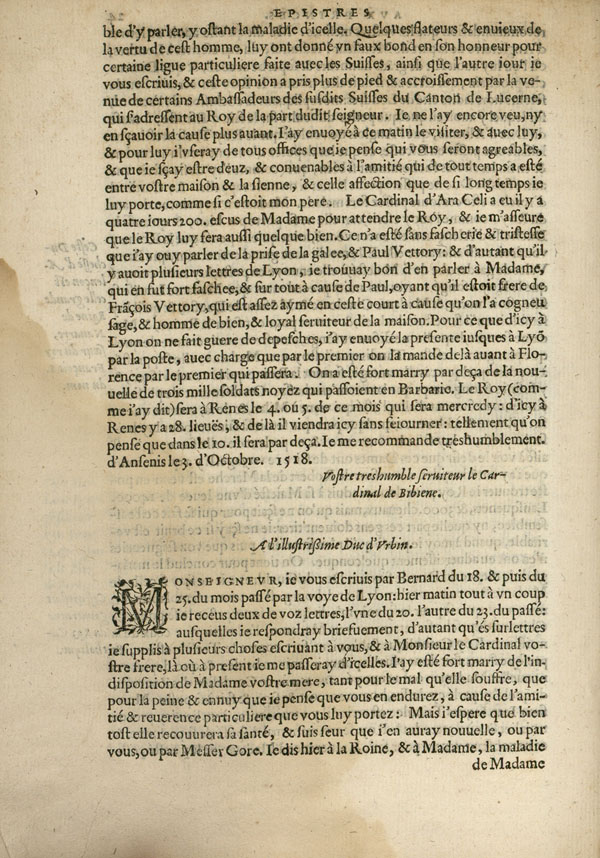 EPISTRES
ble d'y parler, y ostant la maladie d'icelle. Quelques flateurs & enuieux de
la vertu de cest homme, luy ont donné vn faux bond en son honneur pour
certaine ligue particuliere faite auec les Suisses, ainsi que l'autre iour ie
vous escriuis, & ceste opinion a pris plus de pied & accroissement par la ve-
nüe de certains Ambassadeurs des susdits Suisses du Canton de Lucerne,
qui s'adressent au Roy de la part dudit seigneur. Ie ne l'ay encore veu, ny
en sçauoir la cause plus auant. I'ay enuoyé à ce matin le visiter, & auec luy,
& pour luy i'vseray de tous offices que ie pense qui vous seront agreables,
& que ie sçay estre deuz, & conuenables à l'amitié qui de tout temps a esté
entre vostre maison & la sienne, & celle affection que de si long temps ie
luy porte, comme si c'estoit mon pere. Le Cardinal d'Ara Celi a eu il y a
quatre iours 200. escus de Madame pour attendre le Roy, & ie m'asseure
que le Roy luy fera aussi quelque bien. Ce n'a esté sans fascherie & tristesse
que i'ay ouy parler de la prise de la galee, & Paul Vettory: & d'autant qu'il
y auoit plusieurs lettres de Lyon, ie trouuay bon d'en parler à Madame,
qui en fut fort faschee, & sur tout à cause de Paul, oyant qu'il estoit frere de
Frãçois Vettory, qui est assez aymé en ceste court à cause qu'on l'a cogneu
sage, & homme de bien, & loyal seruiteur de la maison. Pour ce que d'icy à
Lyon on ne fait guere de depesches, i'ay enuoyé la presente iusques à Lyõ
par la poste, auec charge que par le premier on la mande delà auant à Flo-
rence par le premier qui passera. On a esté fort marry par deça de la nou-
uelle de trois mille soldats noyez qui passoient en Barbarie. Le Roy (com-
me i'ay dit) sera à Renes le 4. ou 5. de ce mois qui sera mercredy: d'icy à
Renes y a 28. lieuës, & de là il viendra icy sans seiourner: tellement qu'on
pense que dans le 10. il sera par deça. Ie me recommande treshumblement.
d'Ansenis le 3. d'Octobre. 1518.
Vostre treshumble seruiteur le Car-
dinal de Bibiene.
A l'illustrissime Duc d'Vrbin.
MONSEIGNEVR, ie vous escriuis par Bernard du 18. & puis du
25. du mois passé par la voye de Lyon: hier matin tout à vn coup
ie receus deux de voz lettres, l'vne du 20. l'autre du 23. du passé:
ausquelles ie respondray briefuement, d'autant qu'és surlettres
ie supplis à plusieurs choses escriuant à vous, & à Monsieur le Cardinal vo-
stre frere, là où à present ie me passeray d'icelles. I'ay esté fort marry de l'in-
disposition de Madame vostre mere, tant pour le mal qu'elle souffre, que
pour la peine & ennuy que ie pense que vous en endurez, à cause de l'ami-
tié & reuerence particuliere que vous luy portez: Mais i'espere que bien
tost elle recouurera sa santé, & suis seur que i'en auray nouuelle, ou par
vous, ou par Messer Gore. Ie dis hier à la Roine, & à Madame, la maladie
de Madame